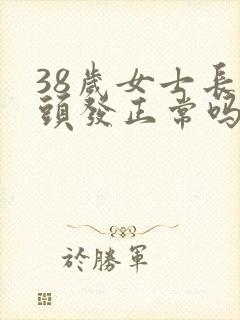 38歲女士長
頭發正常吗
於勝軍